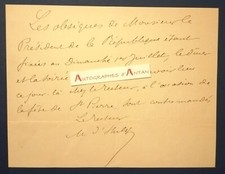 Les obsèques de Monsieur le
Président de la République étant
fixées au Dimanche 1er juillet, le dîner
et la soirée qui devaient avoir lieu
ce jour là chez le recteur, à l'occasion de
la fête de St Pierre, sont contremandés.
Le recteur
AUTOGRAPHES & PASSIONS